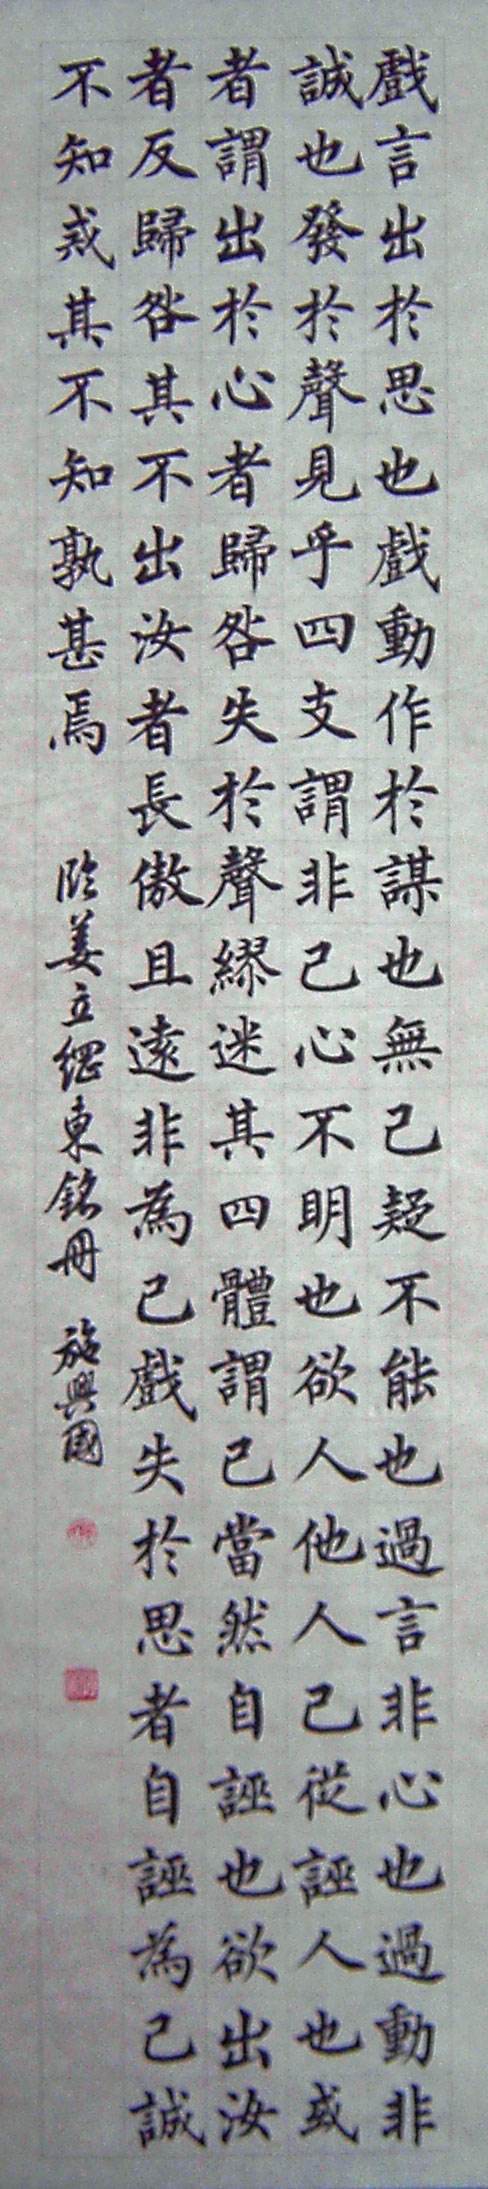 戲言出於思也戲動作於謀也無己疑不能也過言非心也過動非
誠也發於聲見乎四支謂非己心不明也欲人他人己從誣人也或
者謂出於心者歸咎失於聲繆迷其四體謂己當然自誣也欲出汝
者反歸咎其不出汝者長傲且遠非為己戲失於思者自誣為己誠
不知戒其不知孰甚焉
臨姜立綱東銘冊 施興國